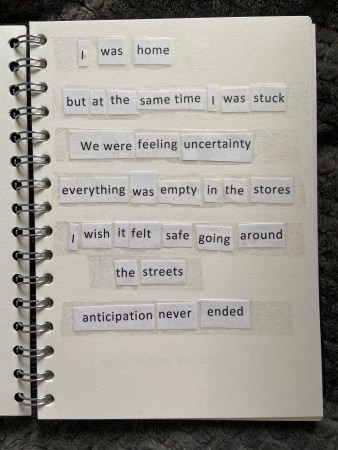 I was home
but at the same time I was stuck
We were feeling uncertainty
everything was empty in the stores
I wish it felt safe going around
the streets
anticipation never ended